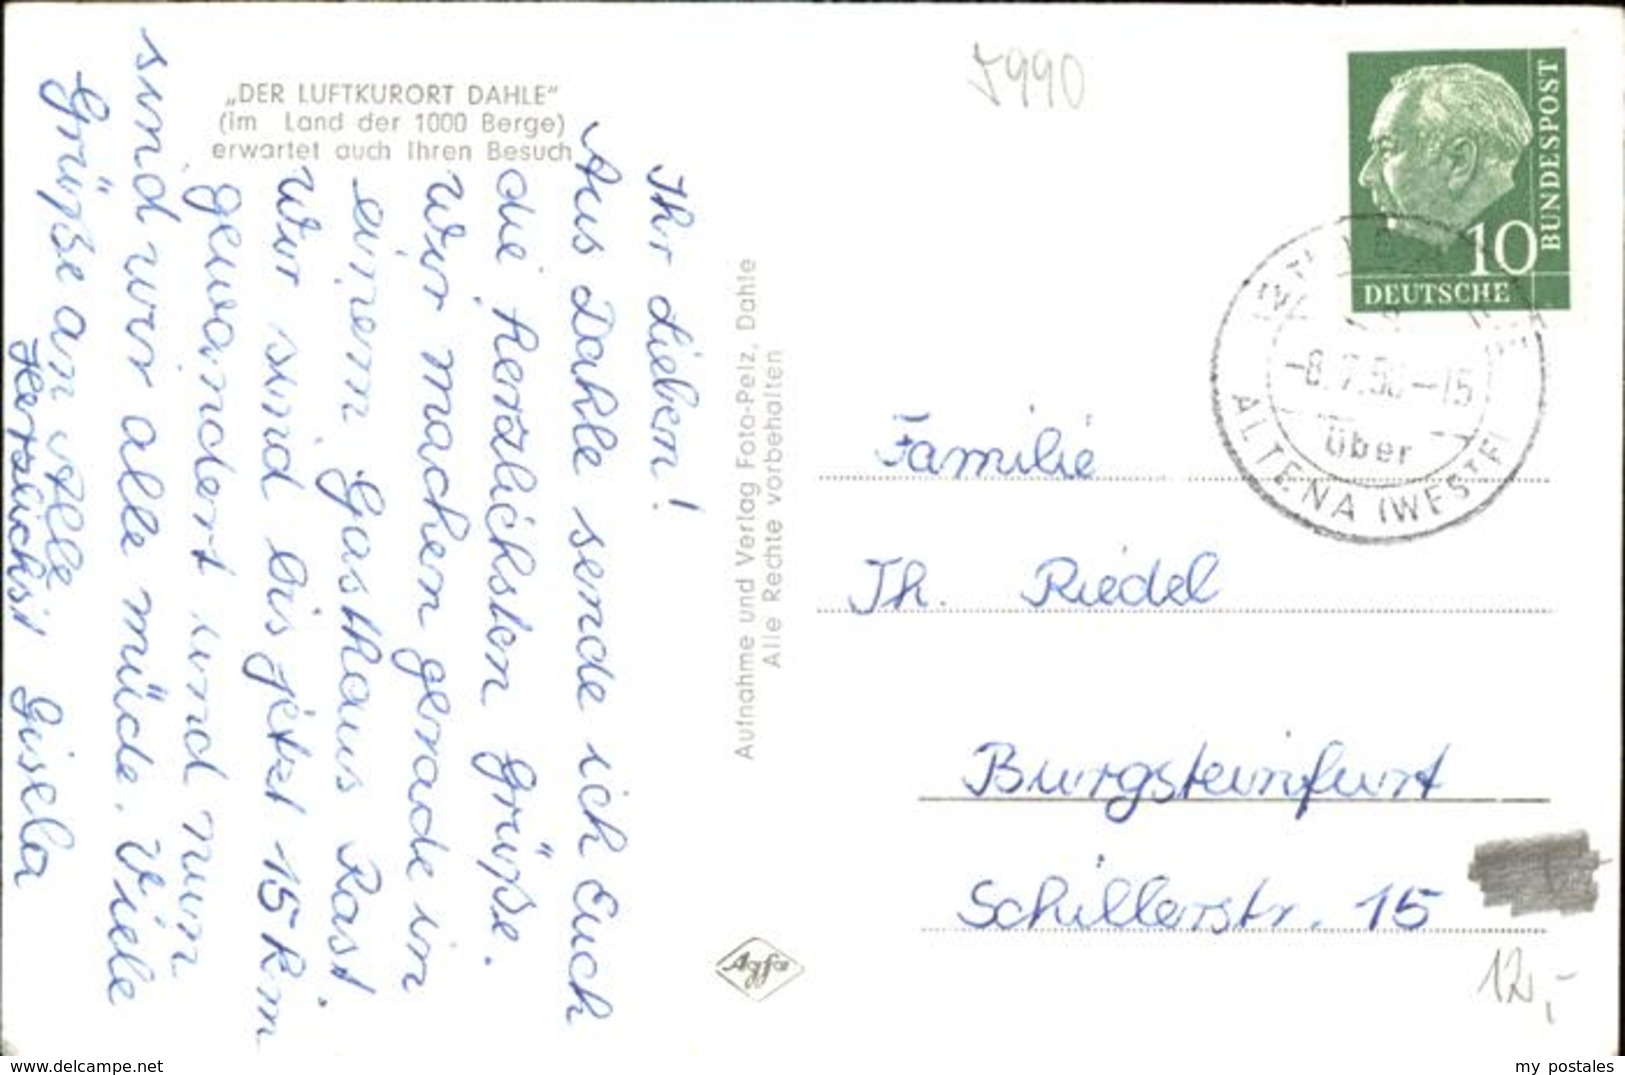 „DER LUFTKURORT DAHLE“
(im Land der 1000 Berge)
erwartet auch Ihren Besuch
Ihr Lieben!
Aus Dahle sende ich Euch
die herzlichsten Grüße.
Wir machen gerade in
einem Gasthaus Rast.
Wir sind bis jetzt 15 km
gewandert und nun
sind wir alle müde. Viele
Grüße an Alle
Herzlichst Gisela
Aufnahme und Verlag Foto-Pelz, Dahle
Alle Rechte vorbehalten
Agfa
5990
BUNDESPOST
10
DEUTSCHE
-8.7.58-15
über
ALTENA (WESTF)
Familie
Th. Riedel
Burgsteinfurt
Schillerstr. 15
12,-
www.delcampe.net
my postales